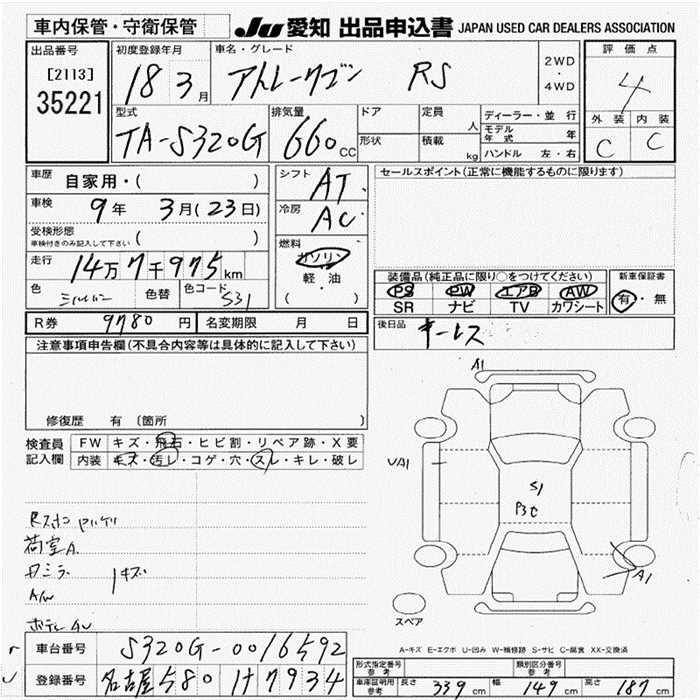 車内保管・守衛保管
JU 愛知 出品申込書 JAPAN USED CAR DEALERS ASSOCIATION
出品番号
[2113]
35221
初度登録年月
18 3月
車名・グレード
アトレーワゴン RS
2WD
・
4WD
評価点
4
外装 内装
C C
型式
TA-S320G
排気量
660cc
ドア
形状
定員 人
積載 kg
ディーラー・並行
モデル年式 年
ハンドル 左・右
車歴 自家用・( )
車検 9年 3月(23日)
受検形態
車検付きのみ記入して下さい ( )
走行 14万7千975km
色 シルバー 色替 色コード S31
シフト AT
冷房 AC
燃料
ガソリン
軽・油
( )
セールスポイント(正常に機能するものに限ります)
装備品(純正品に限り○をつけてください)
PS PW エアB AW
SR ナビ TV カワシート
新車保証書
有・無
R券 9780円 名変期限 月 日
後日品 キーレス
注意事項申告欄(不具合内容等は具体的に記入して下さい)
修復歴 有 〔箇所 〕
検査員
記入欄
FW キズ・飛石・ヒビ割・リペア跡・X要
内装 キズ・汚レ・コゲ・穴・スレ・キレ・破レ
荷室A.
A/W
A1
UA1
S1
A1
スペア
A-キズ E-エクボ U-凹み W-補修跡 S-サビ C-腐食 XX-交換済
車台番号 S320G-0016592
登録番号 名古屋580 H7934
形式指定番号
参考
類別区分番号
参考
車庫証明用
参考
長さ 339cm 幅 149cm 高さ 187cm